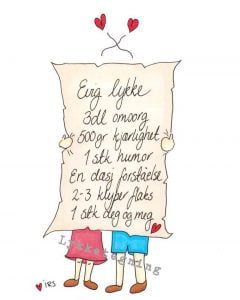 Evig lykke
3dl omsorg
500gr kjærlighet
1 stk humor
En dasj forståelse
2-3 klyper flaks
1 stk deg og meg
Lykketegning
IRS